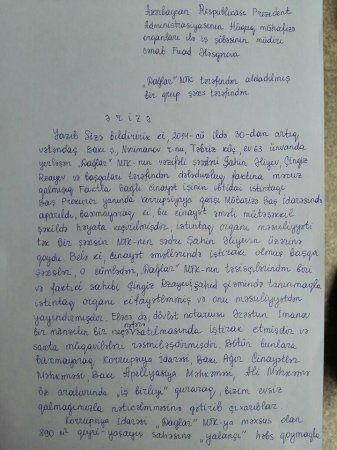 Azərbaycan Respublikası Prezident
Administrasiyasının Hüquq mühafizə
orqanları ilə iş şöbəsinin müdiri
cənab Fuad Ələsgərova
"Dağlar" MTK tərəfindən aldadılmış
bir qrup şəxs tərəfindən
ə r i z ə
Yazıb Sizə bildiririk ki, 2014-cü ildə 30-dan artıq
vətəndaş Bakı ş., Nərimanov r-nu, Təbriz küç., ev 63 ünvanda
yerləşən "Dağlar" MTK-nın vəzifəli şəxsləri Şahin Əliyev, Çingiz
Rzayev və başqaları tərəfindən dələduzluq faktına məruz
qalmışıq. Faktla bağlı cinayət işinin ibtidai istintaqı
Baş Prokuror yanında Korrupsiyaya qarşı Mübarizə Baş İdarəsində
aparıldı, baxmayaraq ki, bu cinayət əməli mütəşəkkil
şəkildə həyata keçirilmişdir, istintaq orqanı məsuliyyəti
tək bir şəxsin MTK-nın sədri Şahin Əliyevin üzərinə
qoydu. Belə ki, cinayət əməllərində iştirakı olmuş başqa
şəxslər, o cümlədən, "Dağlar" MTK-nın təsisçilərindən biri
və faktiki sahibi Çingiz Rzayevi şahid qismində tanınmaqla
istintaq orqanı kifayətlənmiş və onu məsuliyyətdən
yayındırmışdır. Eləcə də, dövlət notariusu Ərəstun İmanov
bir mənzilin bir neçə nəfərə satılmasında iştirak etmişdir və
saxta müqavilələri rəsmiləşdirmişdir. Bütün bunlara
baxmayaraq Korrupsiya İdarəsi, Bakı Ağır Cinayətlər
Məhkəməsi, Bakı Apellyasiya Məhkəməsi, Ali Məhkəmə
öz aralarında "iş birliyi" quraraq, bizim evsiz
qalmağımızla nəticələnməsinə gətirib çıxarıblar.
Korrupsiya İdarəsi "Dağlar" MTK-ya məxsus olan
890 m² qeyri-yaşayış sahəsinə "yalançı" həbs qoymaqla